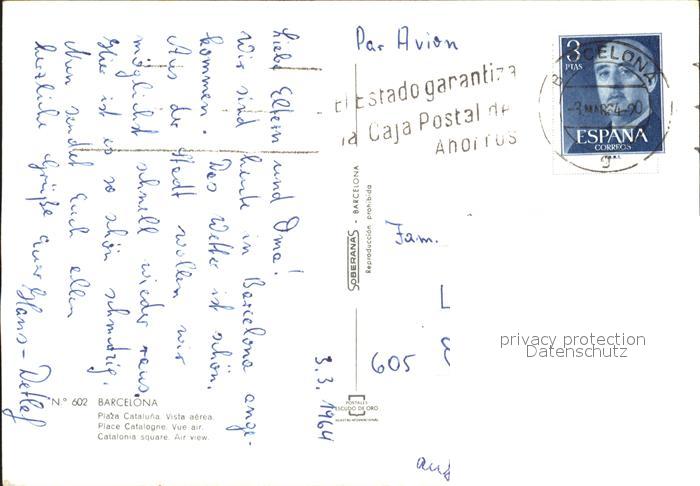 3.3.1964
Liebe Eltern und Oma!
Wir sind heute in Barcelona ange-
kommen. Das Wetter ist schön.
Aus der Stadt wollen wir
möglichst schnell wieder raus.
Hier ist es so schön schmutzig.
Nun sendet Euch allen
herzliche Grüße Euer Hans-Detlef
Par Avion
El Estado garantiza
la Caja Postal de
Ahorros
BARCELONA
3 MAR 64
3
PTAS
ESPAÑA
CORREOS
SOBERANAS - BARCELONA
Reproducción prohibida
Fam.
L
605
privacy protection
Datenschutz
Nº 602 BARCELONA
Plaza Cataluña. Vista aérea.
Place Catalogne. Vue air.
Catalonia square. Air view.
POSTALES
ESCUDO DE ORO